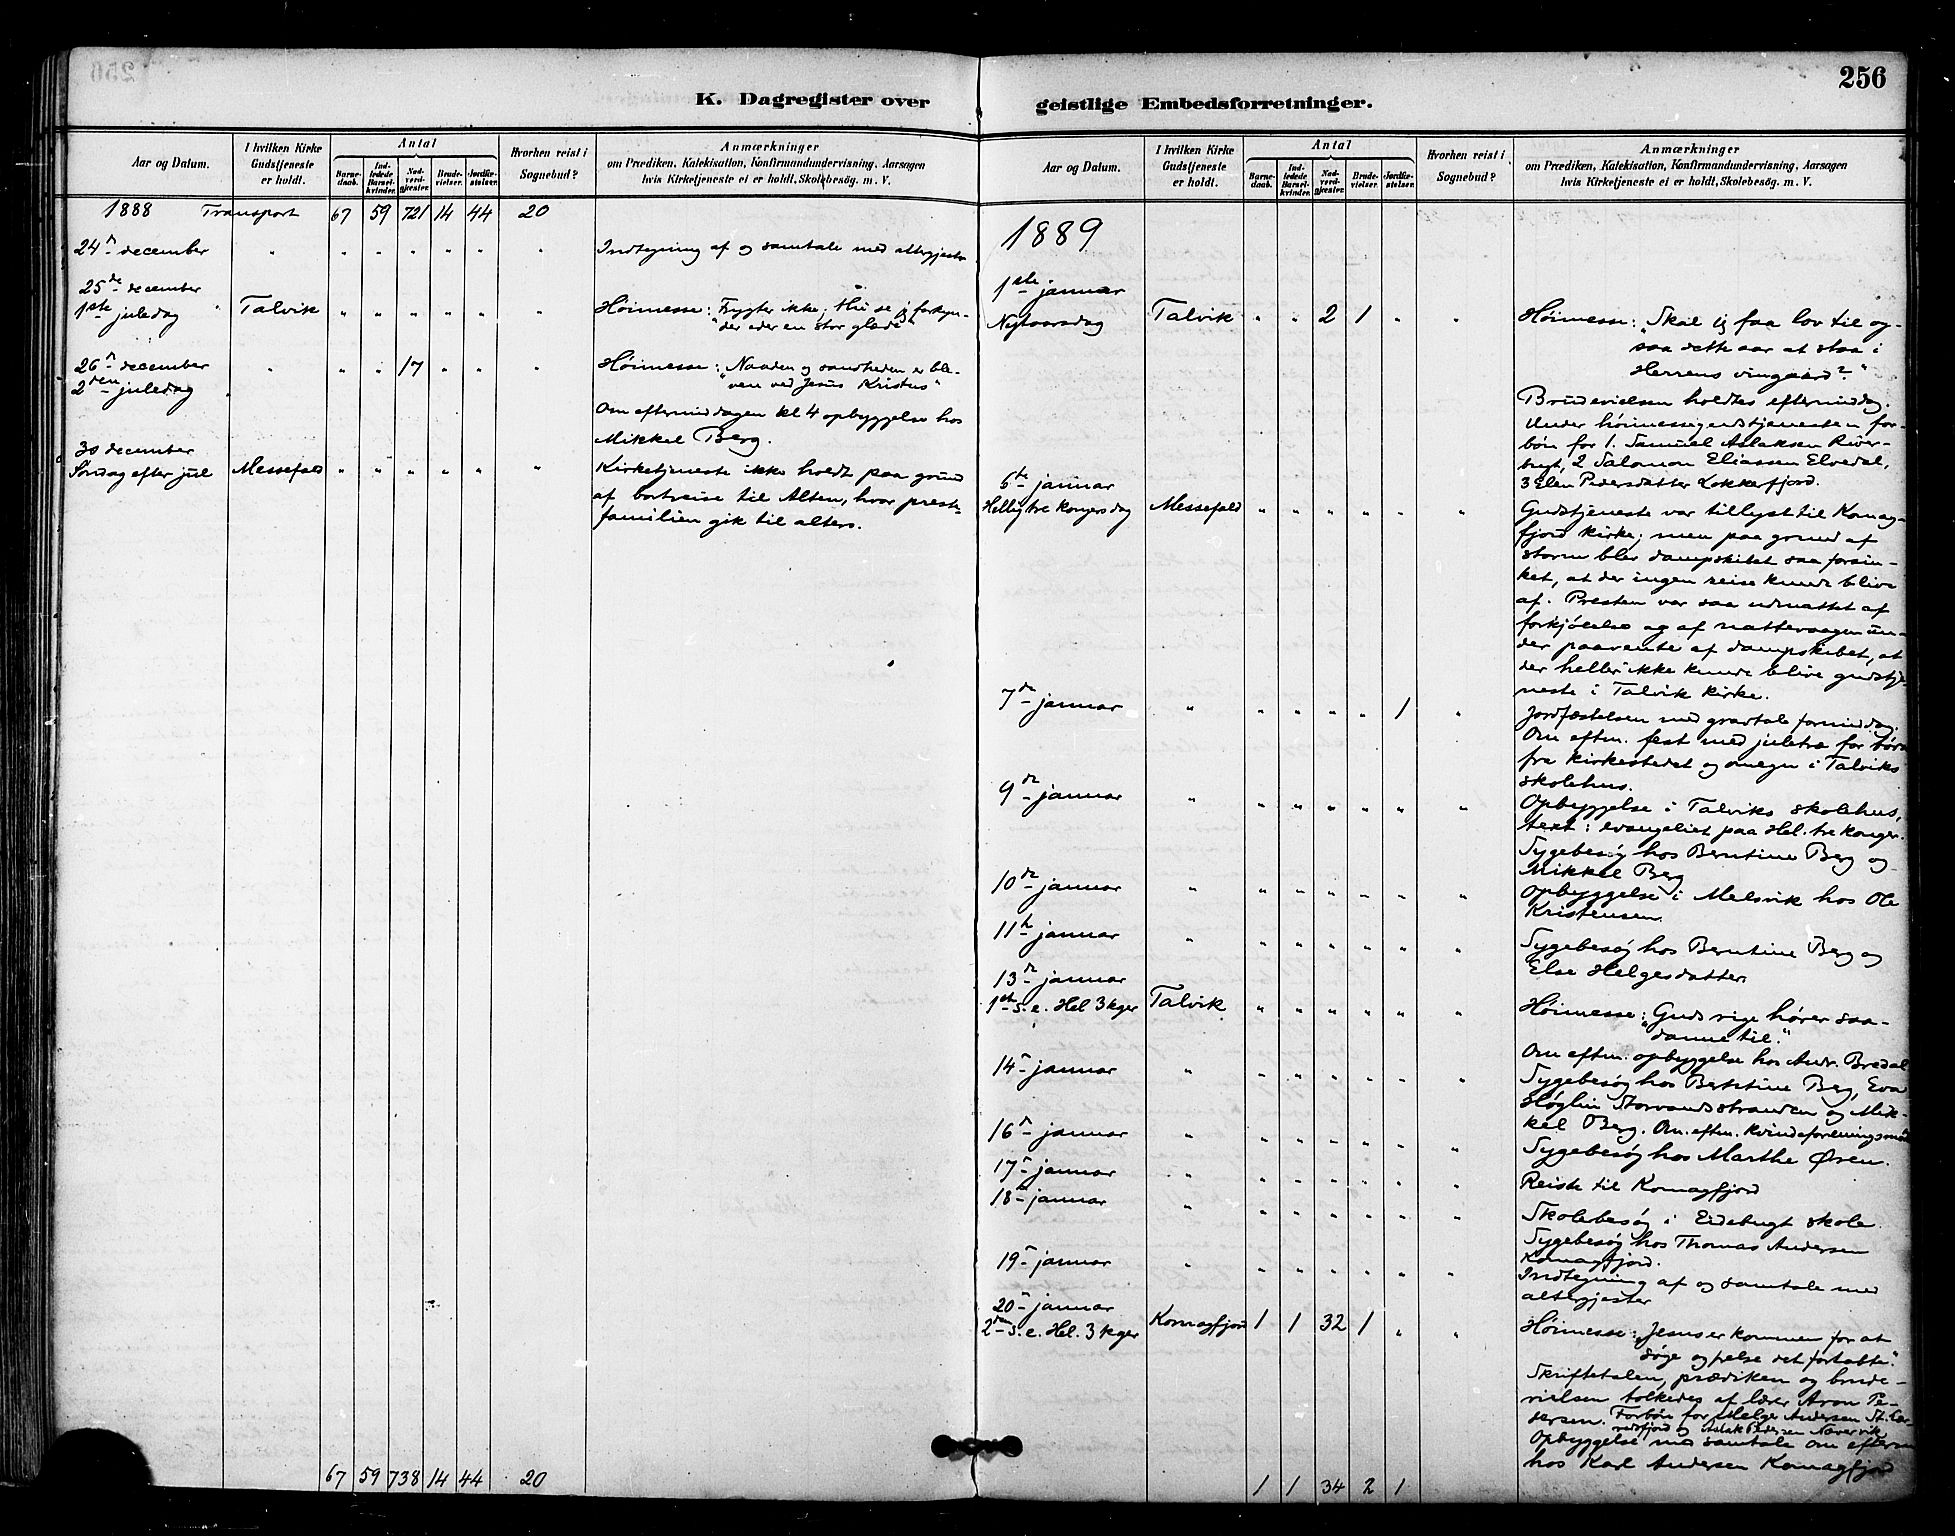 256
K. Dagregister over
geistlige Embedsforretninger.
Aar og Datum.
I hvilken Kirke Gudstjeneste er holdt.
Antal
Barne-daab.
Ind-ledede Barsel-kvinder.
Nad-verd-gjester.
Brude-vielser.
Jordfæ-stelser.
Hvorhen reist i Sognebud?
Anmærkninger
om Prædiken, Katekisation, Konfirmandundervisning, Aarsagen
hvis Kirketjeneste ei er holdt, Skolebesøg. m. V.
1888 Transport 67 59 721 14 44 20
24 december " " " " " " " Indtegning af og samtale med altergjester
25de december
1ste juledag " Talvik " " " " " " Høimesse: "Frygter ikke, thi se jeg forkyn-
der eder en stor glæde"
26 december " " " 17 " " " Høimesse: "Naaden og sandheden er ble-
2den juledag " ven ved Jesus Kristus"
Om eftermiddagen kl 4 opbyggelse hos
Mikkel Berg.
30 december
Søndag efter jul Messefald " " " " " " Kirketjeneste ikke holdt paa grund
af bortreise til Alten, hvor preste-
familien gik til alters.
67 59 738 14 44 20
Aar og Datum.
I hvilken Kirke Gudstjeneste er holdt.
Antal
Barne-daab.
Ind-ledede Barsel-kvinder.
Nad-verd-gjester.
Brude-vielser.
Jordfæ-stelser.
Hvorhen reist i Sognebud?
Anmærkninger
om Prædiken, Katekisation, Konfirmandundervisning, Aarsagen
hvis Kirketjeneste ei er holdt, Skolebesøg. m. V.
1889
1ste januar
Nytaarsdag Talvik " " 2 1 " " Høimesse: "Skal jeg faa lov til og-
saa dette aar at staa i
Herrens vingaard?"
Brudevielsen holdtes eftermiddag.
Under høimessegudstjenesten for-
bøn for 1. Samuel Aslaksen River-
bugt, 2 Salomon Eliassen Elvedal,
3 Elen Pedersdatter Lokkerfjord.
6te januar
Hellig tre kongersdag Messefald " " " " " " Gudstjeneste var tillyst til Komag-
fjord kirke; men paa grund af
storm blev dampskibet saa forsin-
ket, at der ingen reise kunde blive
af. Presten var saa udmattet af
forkjølelse og af nattevaagen un-
der paavente af dampskibet, at
der heller ikke kunde blive gudstje-
neste i Talvik kirke.
7de januar " " " " " 1 " Jordfæstelsen med gravtale formiddag.
Om efterm. fest med juletræ for børn
fra kirkestedet og omegn i Talviks
skolehus.
9de januar " " " " " " " Opbyggelse i Talviks skolehus,
text: evangeliet paa Hel. tre konger.
Sygebesøg hos Berntine Berg og
Mikkel Berg
10de januar " " " " " " " Opbyggelse i Melsvik hos Ole
Kristensen.
11te januar " " " " " " " Sygebesøg hos Berntine Berg og
Else Helgesdatter
13de januar
1ste s. e. Hel 3 kger Talvik " " " " " " Høimesse: "Guds rige hører saa-
danne til."
Om efterm. opbyggelse hos Andr. Bredal
14 januar " " " " " " " Sygebesøg hos Berntine Berg, Eva
Høglin Storvandsstranden og Mik-
kel Berg. Om efterm. kvindeforeningsmøde
16 januar " " " " " " " Sygebesøg hos Marthe Øren.
17 januar " " " " " " " Reiste til Komagfjord
18 januar " " " " " " " Skolebesøg i Eidebugt skole.
Sygebesøg hos Thomas Andersen
Komagfjord.
19 januar " " " " " " " Indtegning af og samtale med
altergjester
20 januar
2den s. e. Hel. 3 kger Komagfjord 1 1 32 1 " " Høimesse: "Jesus er kommen for at
søge og frelse det fortabte."
Skriftetalen, prædiken og brude-
vielsen tolkedes af lærer Aron Pe-
dersen. Forbøn for Helge Andersen St. Ler-
redsfjord og Aslak Pedersen Navervik
Opbyggelse med samtale om efterm
hos Karl Andersen Komagfjord
1 1 34 2 1